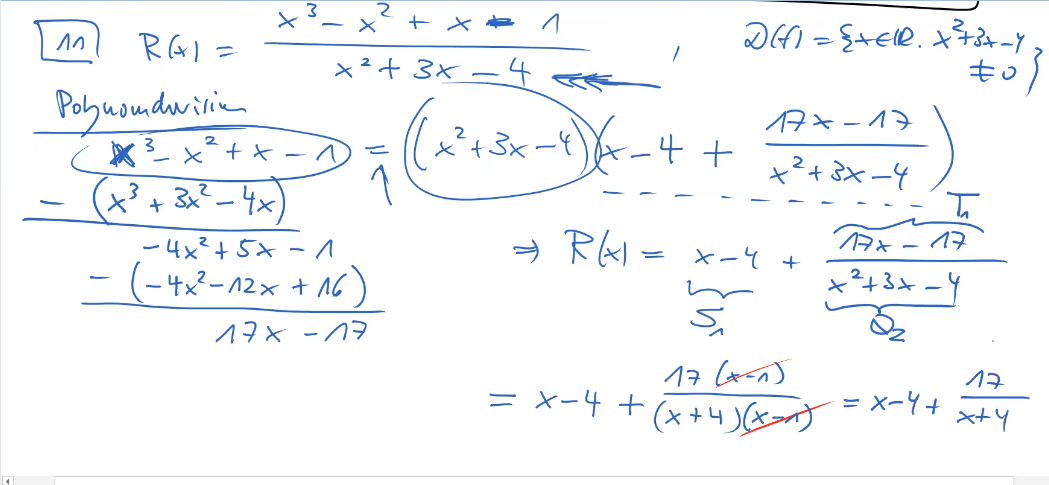 11 R(x) = (x³ - x² + x - 1) / (x² + 3x - 4) , D(f) = {x∈ℝ. x²+3x-4 ≠ 0}
Polynomdivision
x³ - x² + x - 1 = (x²+3x-4)(x-4 + (17x-17)/(x²+3x-4))
- (x³ + 3x² - 4x)
-4x² + 5x - 1
- (-4x² - 12x + 16)
17x - 17
T₁
⇒ R(x) = x-4 + (17x-17)/(x²+3x-4)
S₁ Q₂
= x-4 + 17(x-1)/((x+4)(x-1)) = x-4 + 17/(x+4)